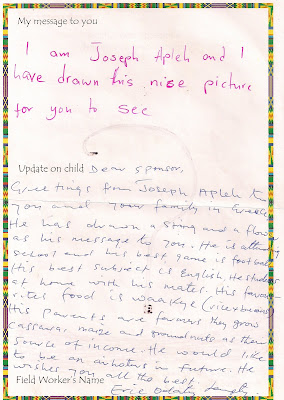 My message to you
I am Joseph Apleh and I
have drawn this nice picture
for you to see
Update on child Dear Sponsor,
Greetings from Joseph Apleh to
you and your family in Greece.
He has drawn a string and a flower
as his message to you. He is attending
school and his best game is football
His best subject is English. He studies
at home with his mates. His favou-
rites food is waakye (rice x beans)
His parents are farmers they grow
cassava, maize and groundnuts as their
source of income. He would like
to be an in future. He
wishes you all the best.
Field Worker's Name Eric